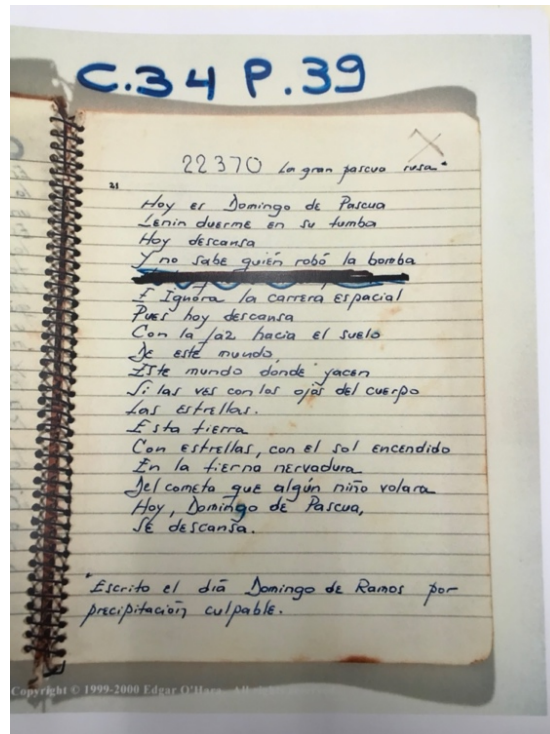 C.34 P.39
22370 La gran pascua rusa*
21
Hoy es Domingo de Pascua
Lenin duerme en su tumba
Hoy descansa
Y no sabe quién robó la bomba
E Ignora la carrera espacial
Pues hoy descansa
Con la faz hacia el suelo
De este mundo,
Este mundo dónde yacen
Si las ves con los ojos del cuerpo
Las estrellas.
Esta tierra
Con estrellas, con el sol encendido
En la tierna nervadura
Del cometa que algún niño volara
Hoy, Domingo de Pascua,
Se descansa.
*Escrito el día Domingo de Ramos por
precipitación culpable.
Copyright © 1999-2000 Edgar O'Hara